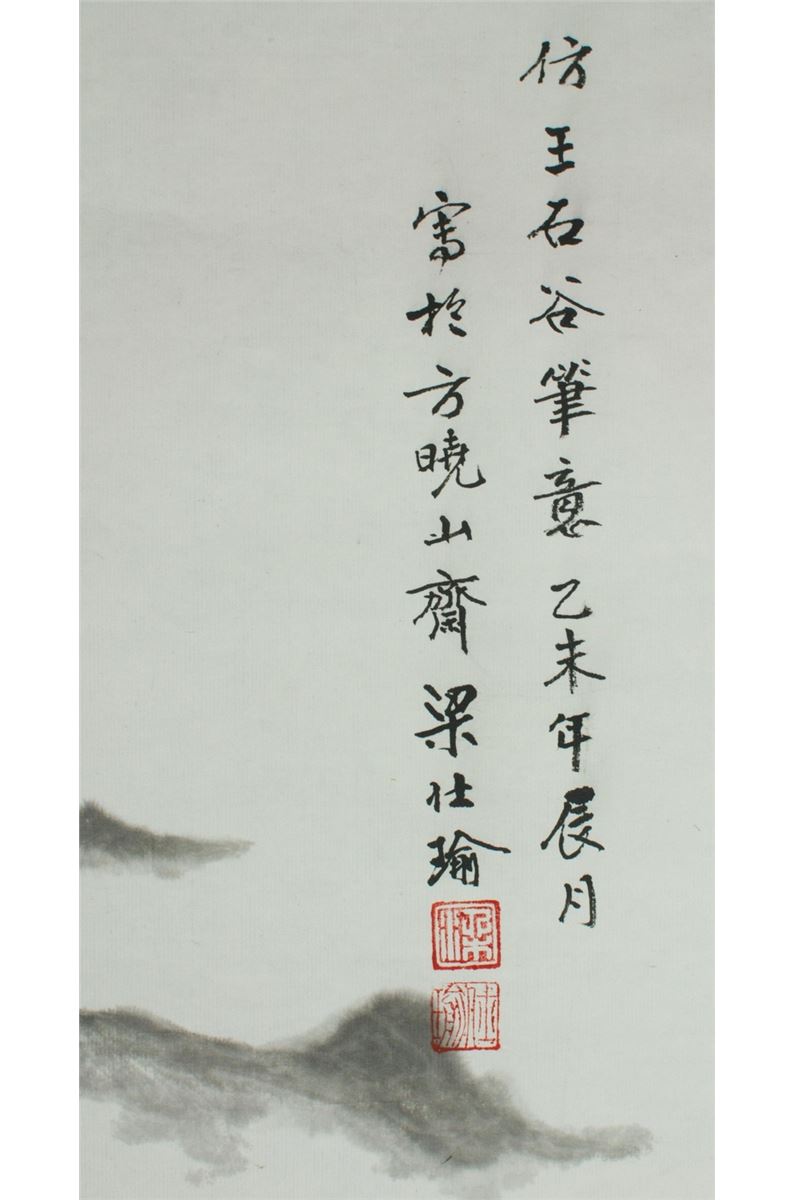 仿王石谷筆意乙未年辰月
寫於方曉山齋梁仕瑜
梁
仕瑜